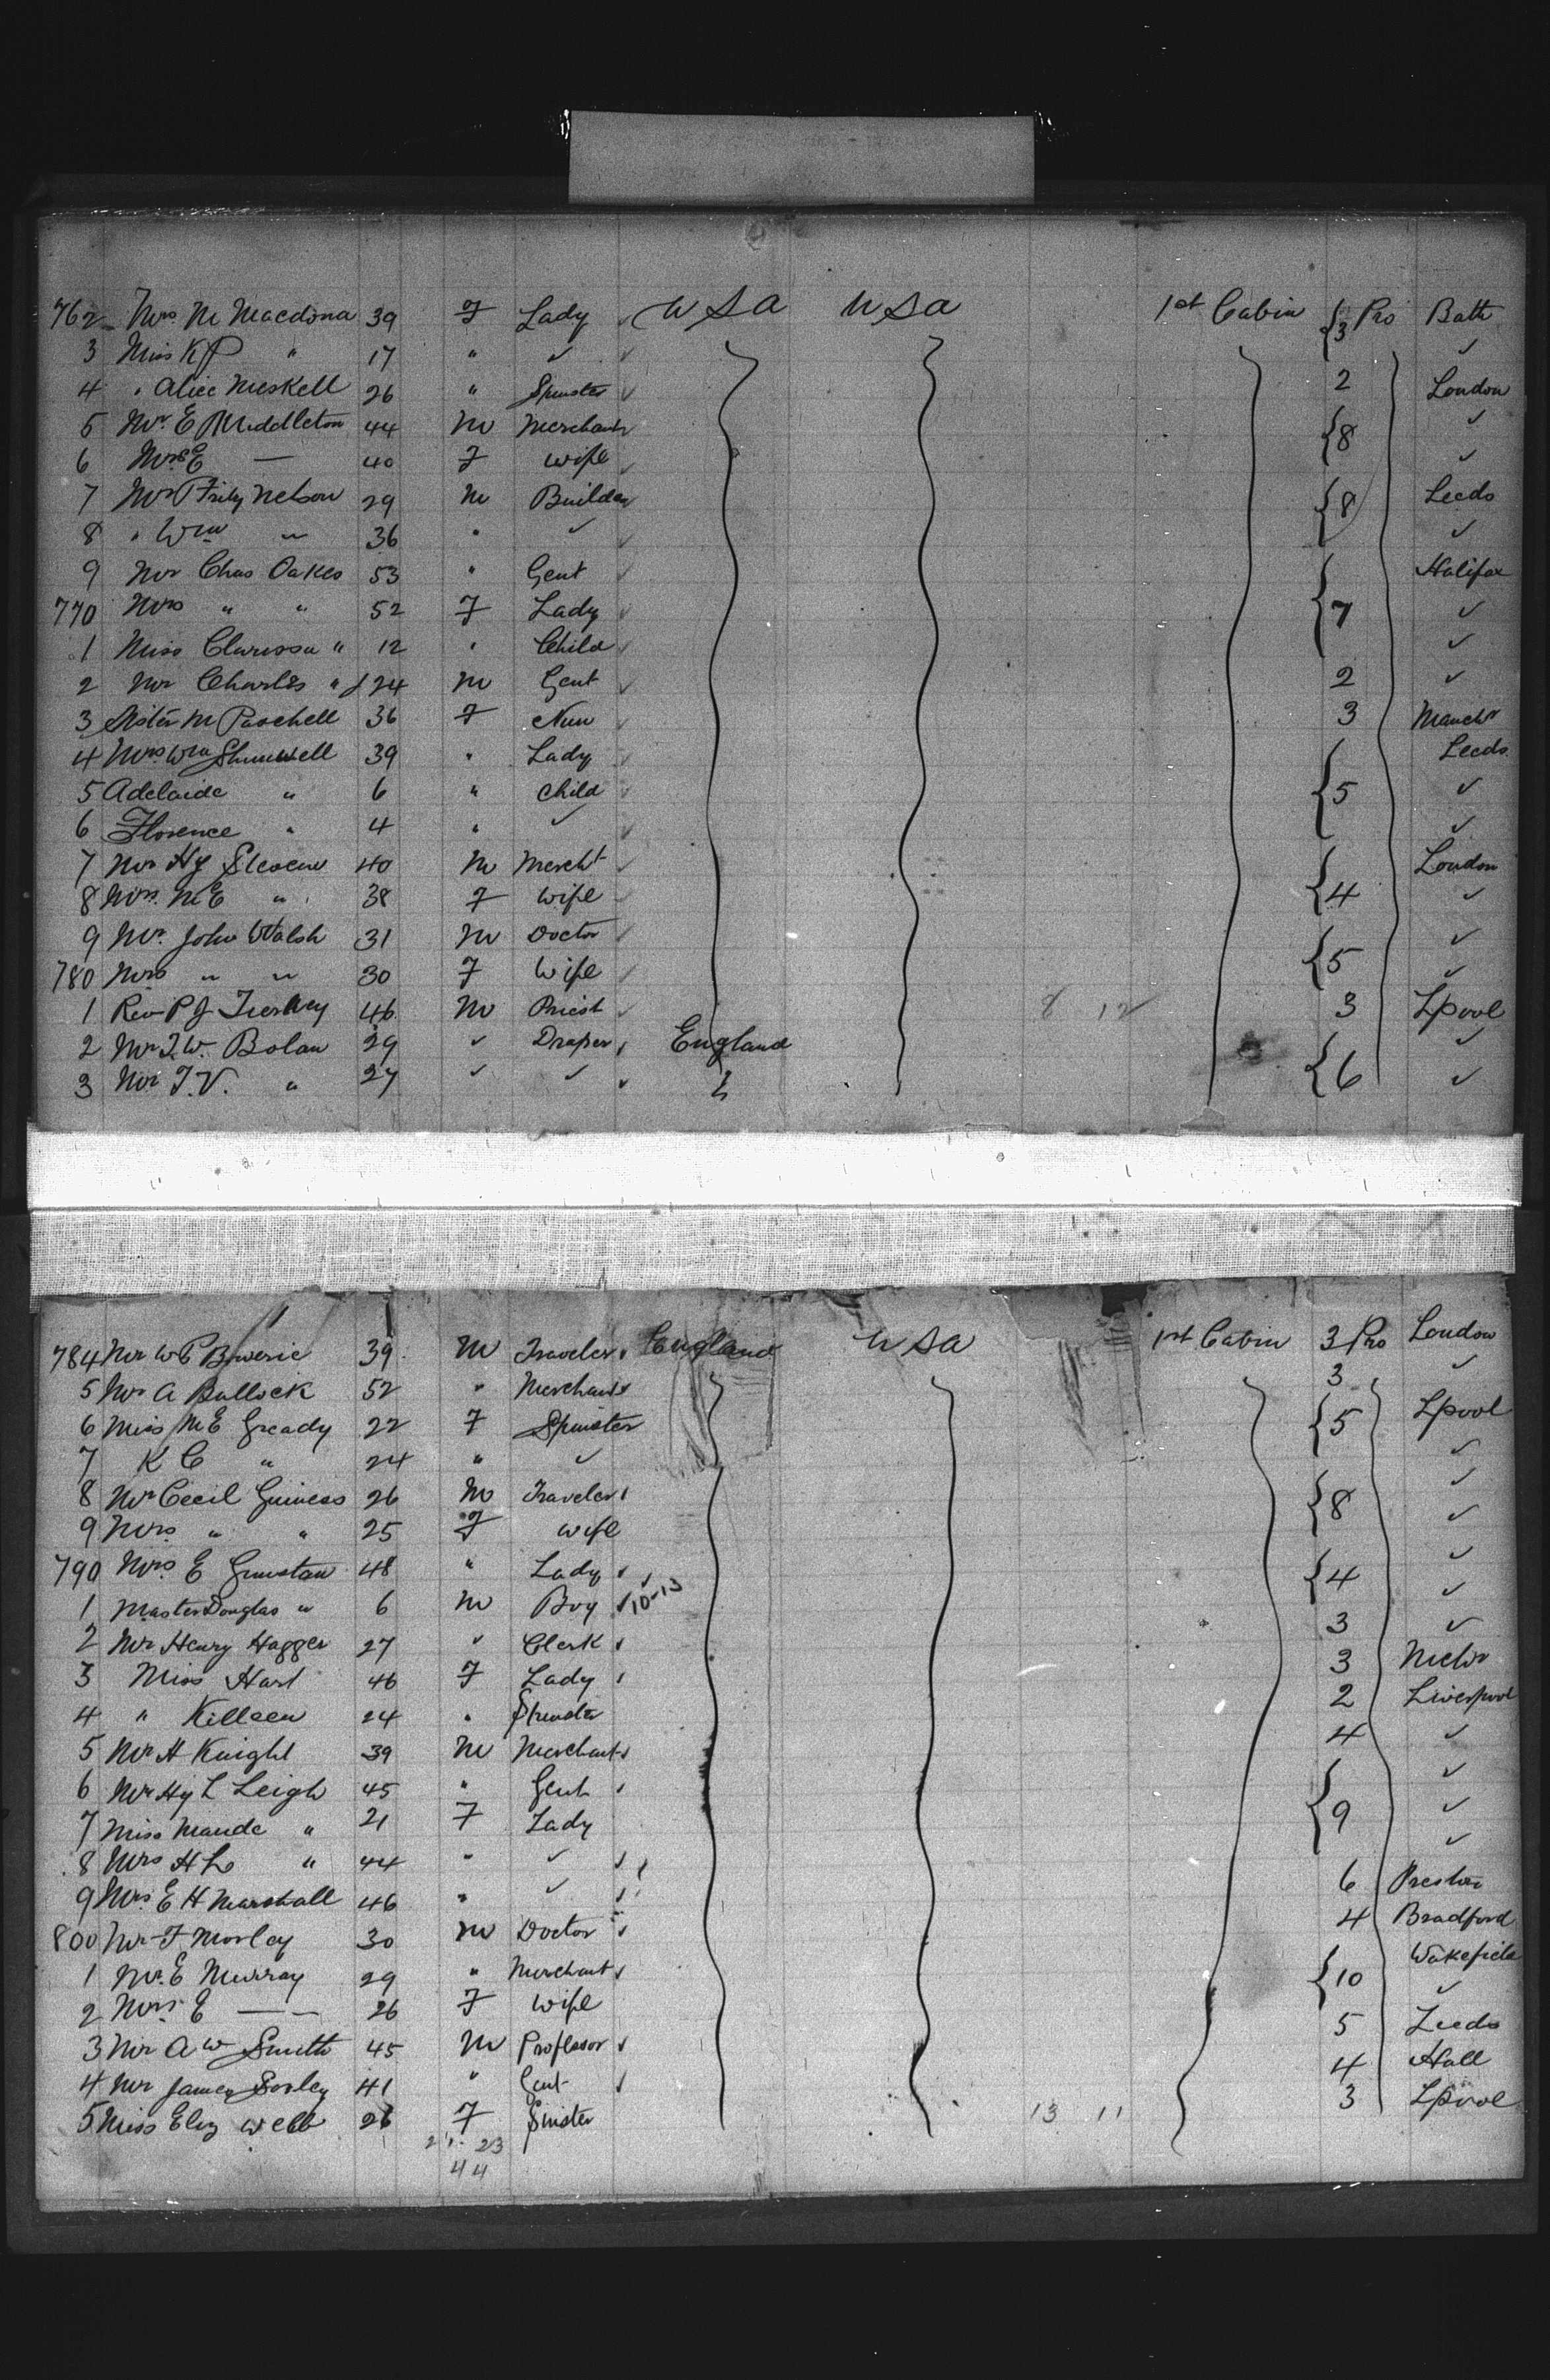 762 Mrs M Macdona 39 F Lady U S A U S A 1st Cabin { 3 Pro Bath
3 Miss K P " 17 " ✓ ✓
4 " Alice Meskell 26 " Spinster 2 London
5 Mr. E Middleton 44 M Merchant { 8 ✓
6 Mrs E — 40 F Wife ✓
7 Mr Nelson 29 M Builder { 8 Leeds
8 " Wm " 36 " ✓ ✓
9 Mr Chas Oakes 53 " Gent { 7 Halifax
770 Mrs " " 52 F Lady ✓
1 Miss Clarissa " 12 " Child ✓
2 Mr Charles " 24 M Gent 2 ✓
3 Sister M Paschell 36 F Nun 3 Manchr
4 Mrs Wm 39 " Lady { 5 Leeds
5 Adelaide " 6 " Child ✓
6 Florence " 4 " ✓ ✓
7 Mr Hy Stevens 40 M Mercht { 4 London
8 Mrs. M E " 38 F Wife ✓
9 Mr. John Walsh 31 M Doctor { 5 ✓
780 Mrs " " 30 F Wife ✓
1 Rev P J 46 M Priest 8 12 3 Lpool
2 Mr T. W. Bolan 29 " Draper England { 6 ✓
3 Mr T. V. " 27 ✓ ✓ ✓
784 Mr W C 39 M Traveler England U S A 1st Cabin 3 Pro London
5 Mr A Bullock 52 " Merchant 3 ✓
6 Miss M E Gready 22 F Spinster { 5 Lpool
7 K C " 24 " ✓ ✓
8 Mr Cecil Guiness 26 M Traveler { 8 ✓
9 Mrs " " 25 F Wife ✓
790 Mrs E 48 " Lady { 4 ✓
1 Master Douglas " 6 M Boy 10-13 ✓
2 Mr Henry Hagger 27 " Clerk 3 ✓
3 Miss Hart 46 F Lady 3
4 " Killeen 24 " Spinster 2 Liverpool
5 Mr H Knight 39 M Merchant 4 ✓
6 Mr Hy L Leigh 45 " Gent { 9 ✓
7 Miss Maude " 21 F Lady ✓
8 Mrs H L " 44 " ✓ ✓
9 Mrs. E H Marshall 46 " ✓ 6 Preston
800 Mr F Morley 30 M Doctor 4 Bradford
1 Mr. E Murray 29 " Merchant { 10 Wakefield
2 Mrs. E — 26 F Wife ✓
3 Mr A W Smith 45 M Professor 5 Leeds
4 Mr James Sorley 41 " Gent 4 Hull
5 Miss Eliz Webb 26 F 13 11 3 Lpool
21 23
44